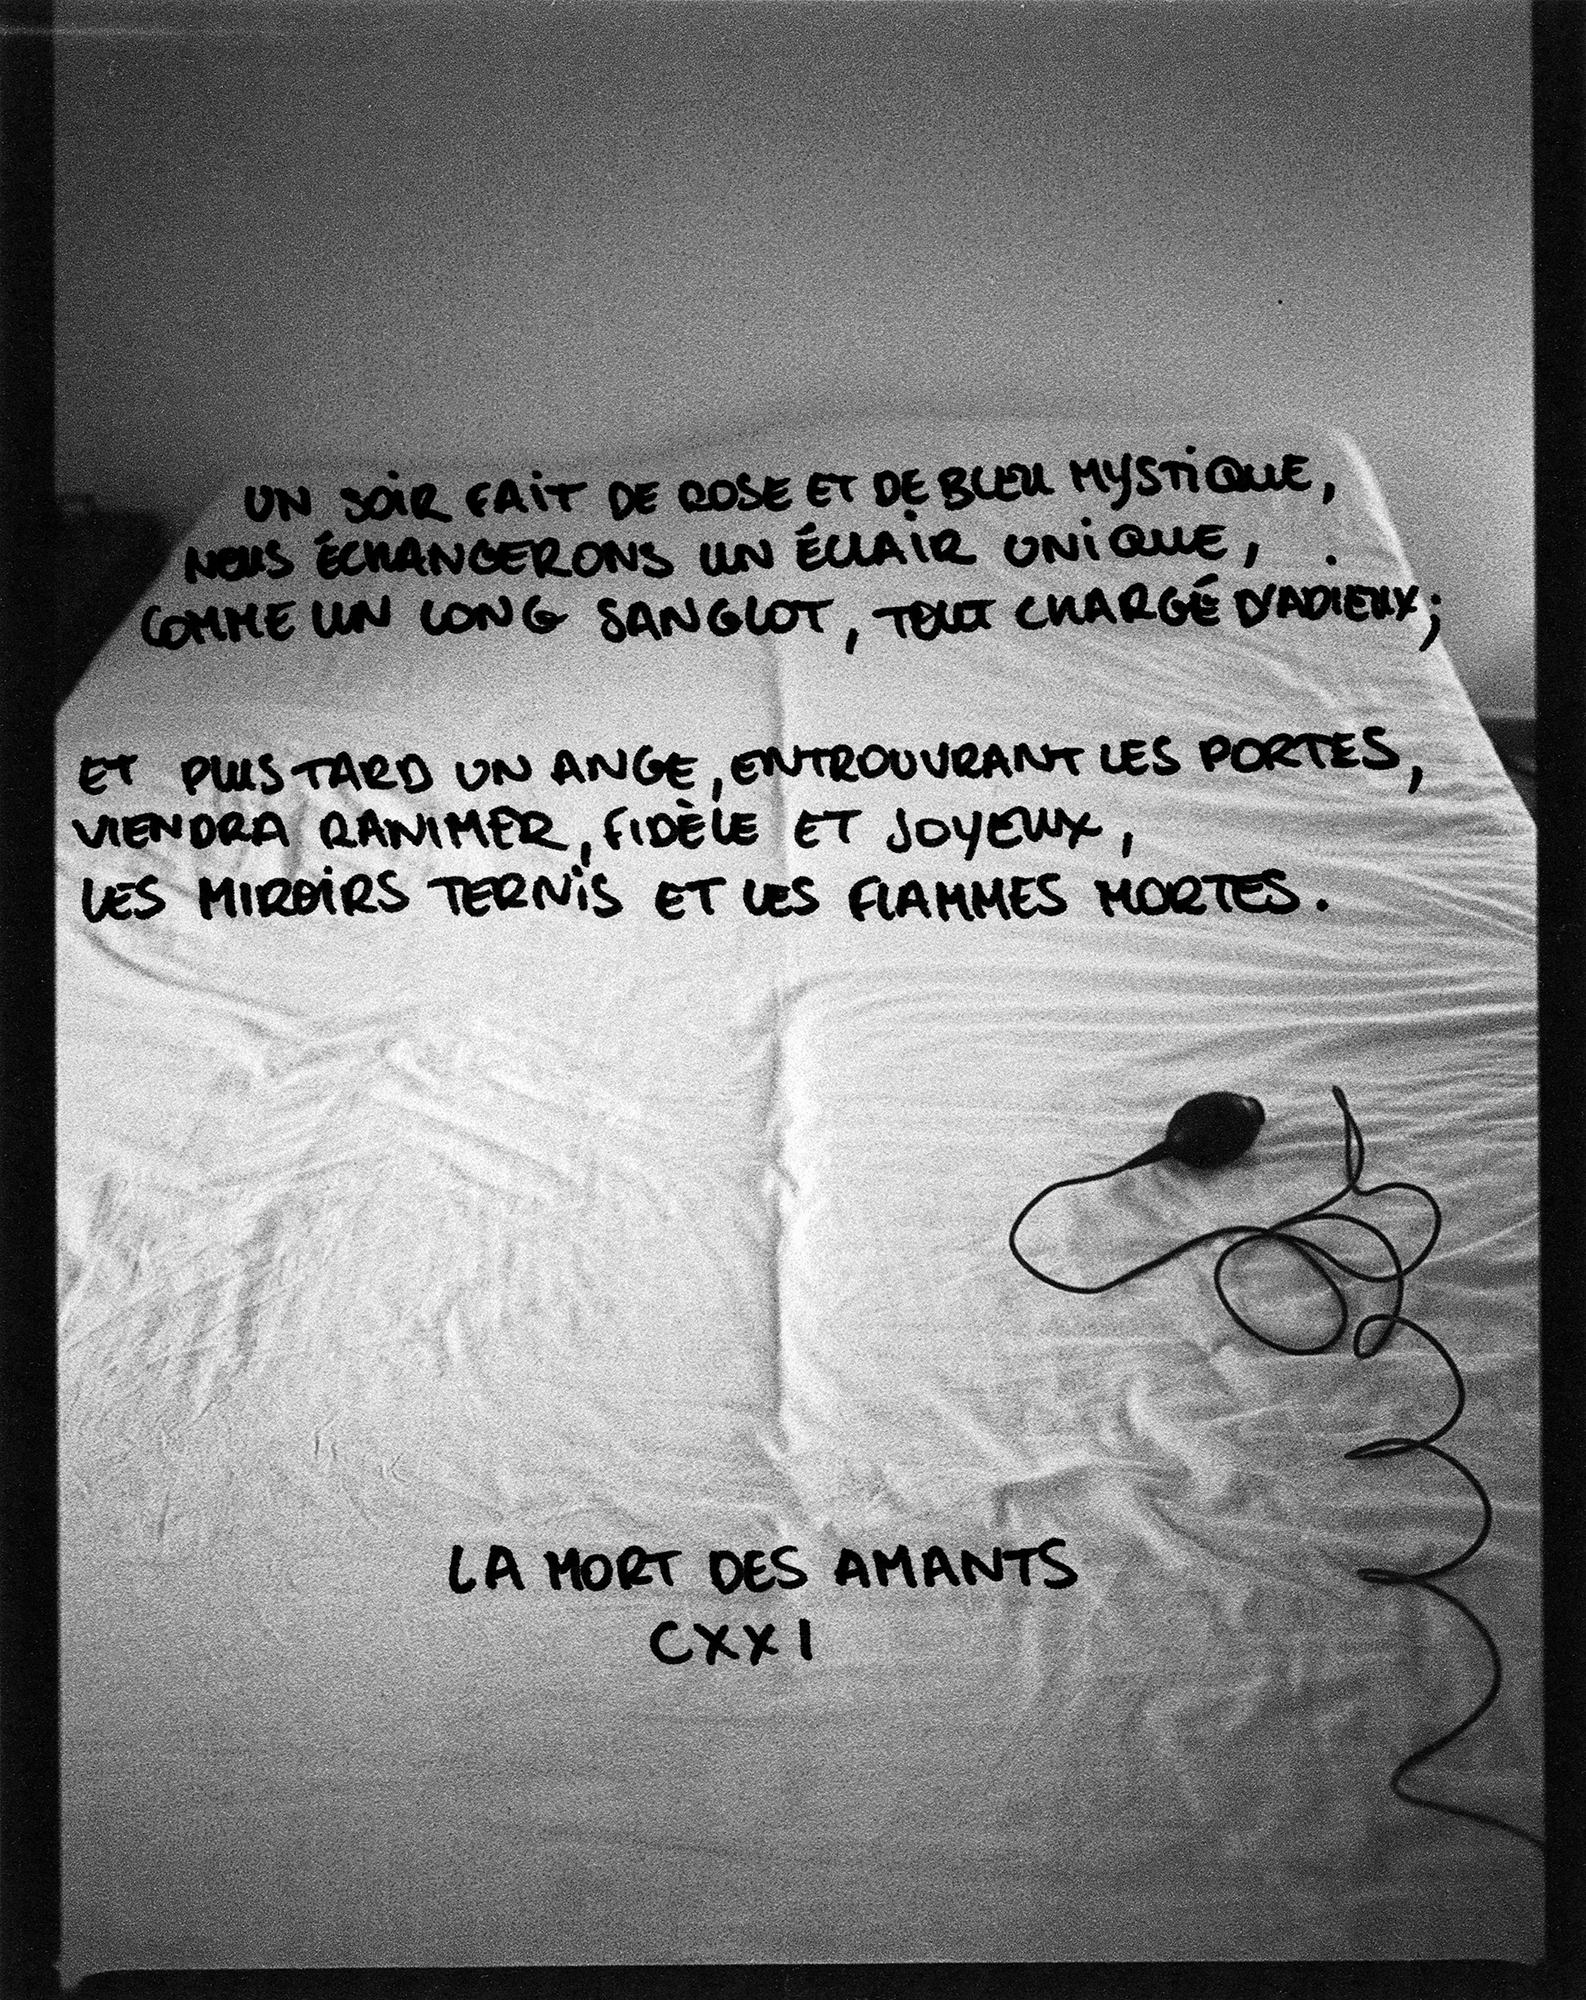 UN SOIR FAIT DE ROSE ET DE BLEU MYSTIQUE,
NOUS ÉCHANGERONS UN ÉCLAIR UNIQUE,
COMME UN LONG SANGLOT, TOUT CHARGÉ D'ADIEUX;
ET PLUS TARD UN ANGE, ENTROUVRANT LES PORTES,
VIENDRA RANIMER, FIDÈLE ET JOYEUX,
LES MIROIRS TERNIS ET LES FLAMMES MORTES.
LA MORT DES AMANTS
CXXI